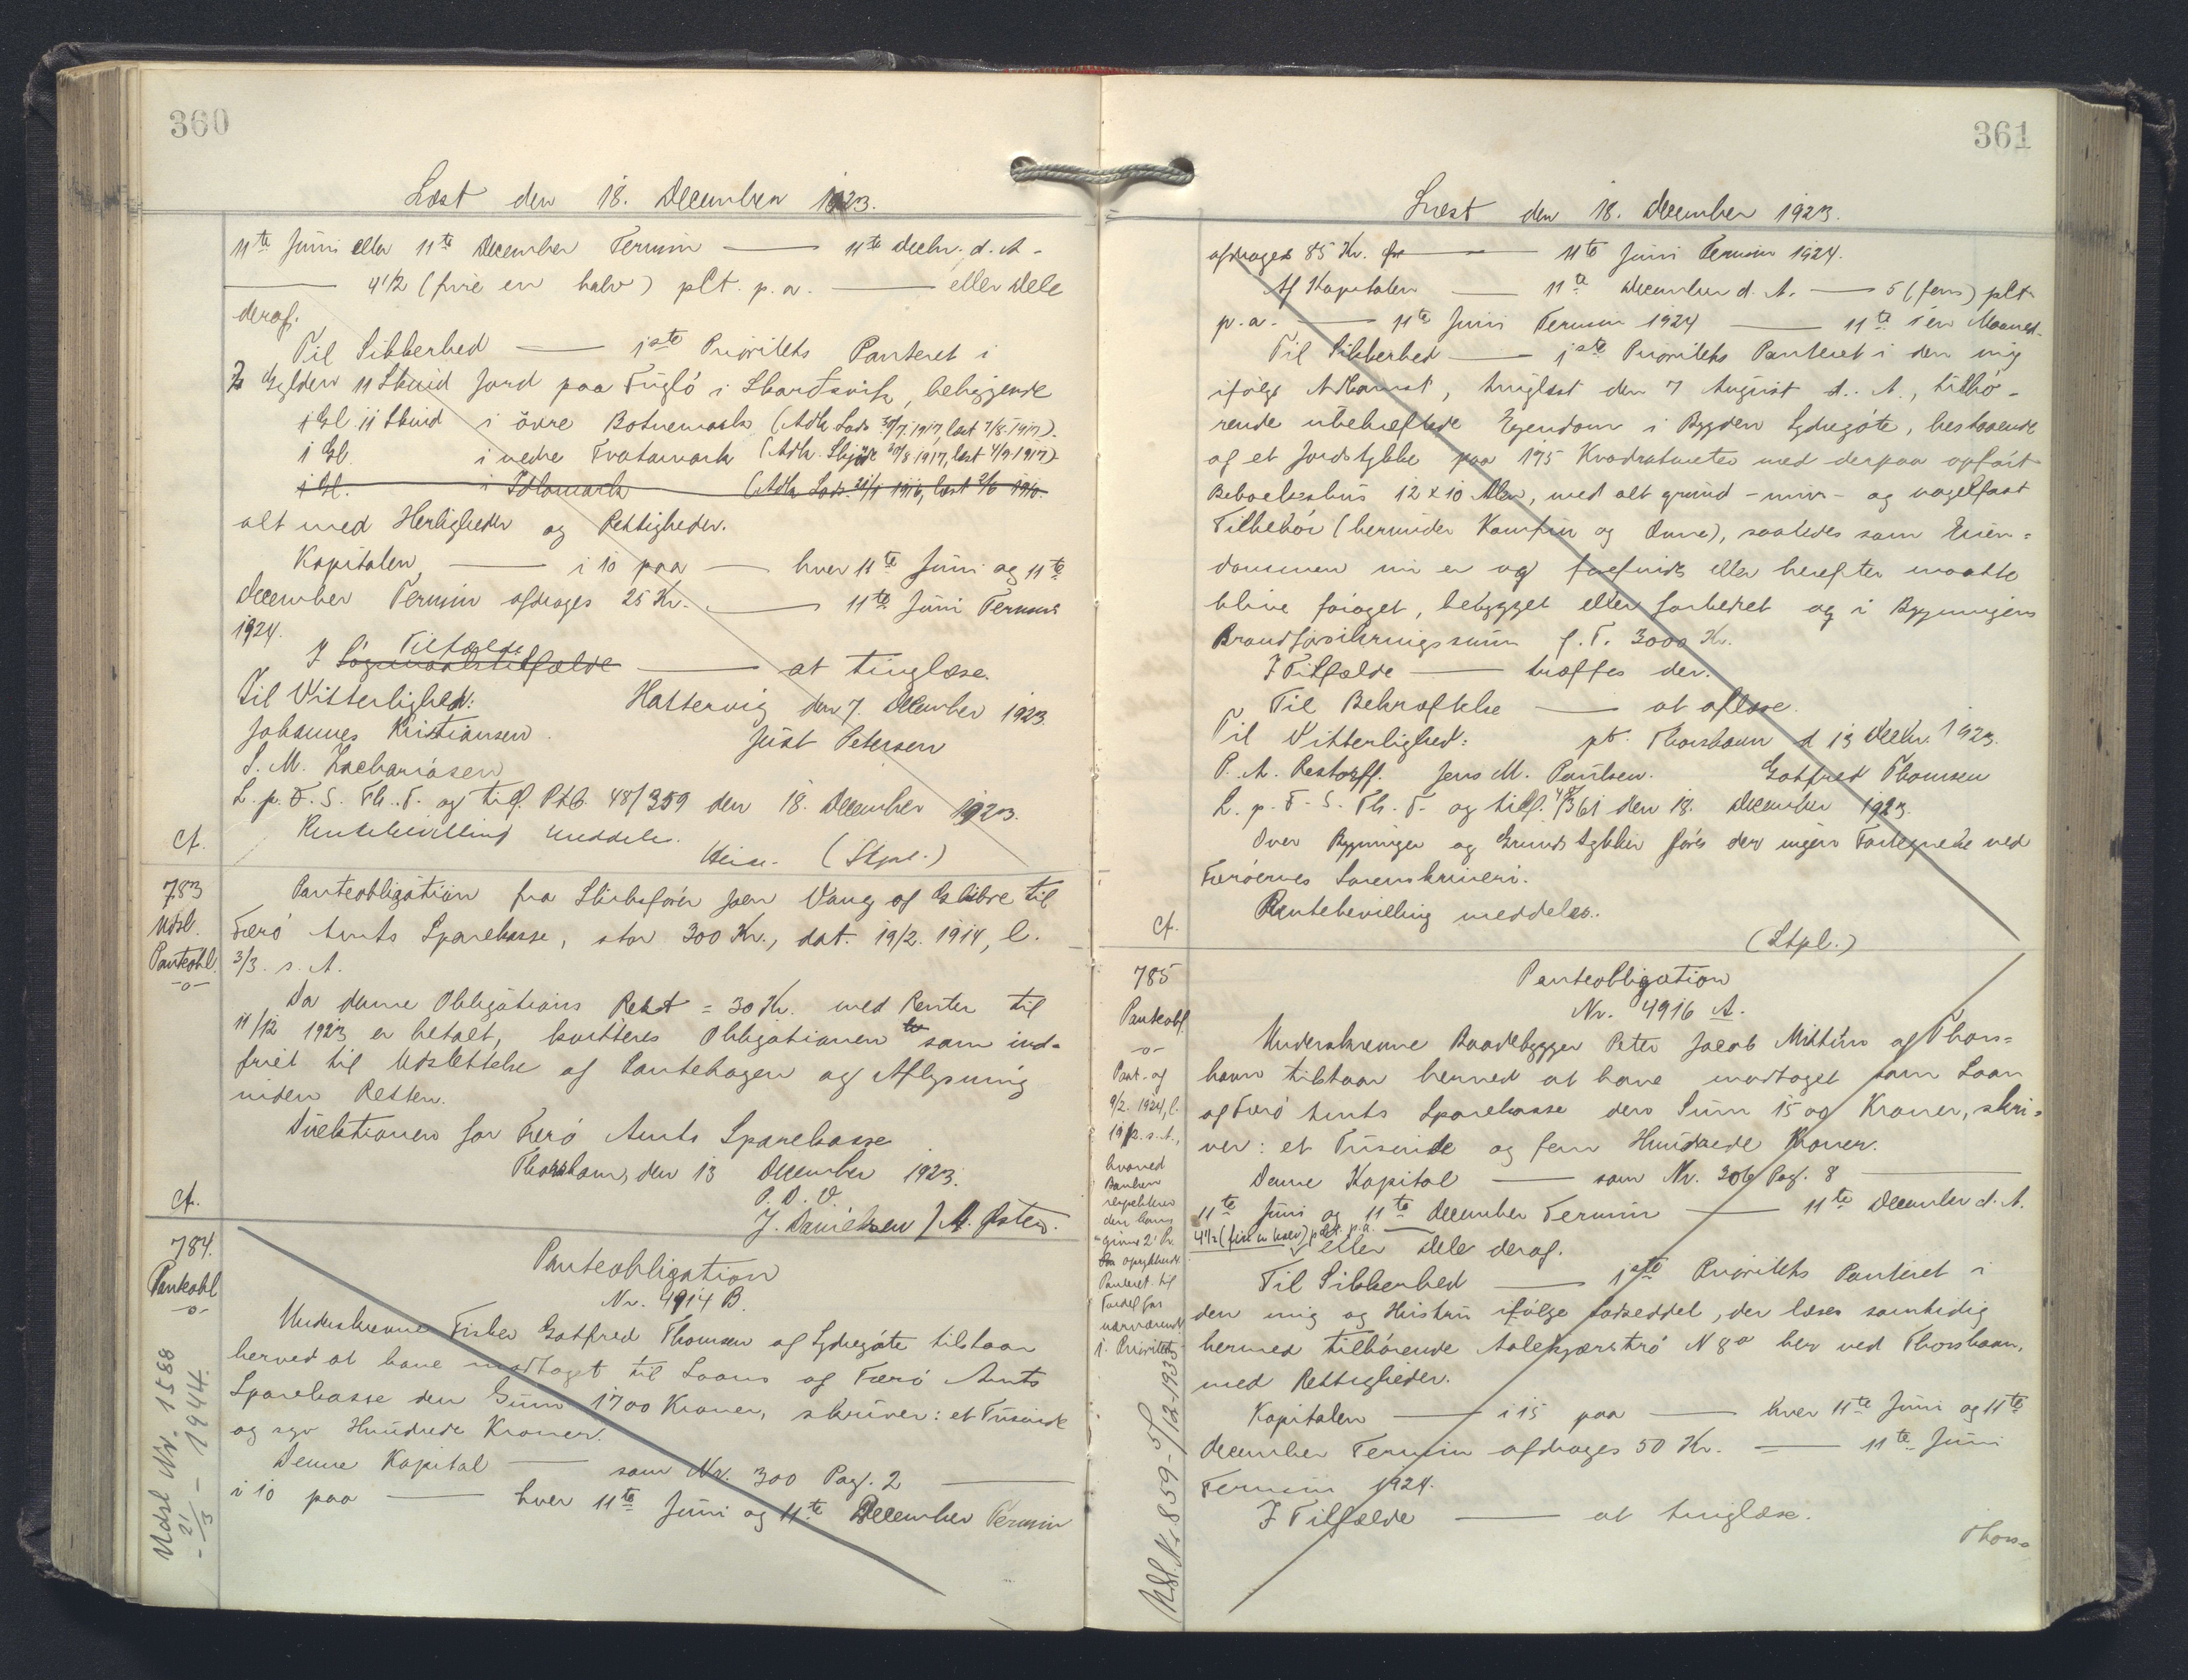 360
Læst den 18. December 1923.
11te Juni eller 11te December Termin — 11te Decbr. d. A.
— 4 1/2 (fire en halv) pCt. p. a. — eller Dele
deraf.
Til Sikkerhed — 1ste Prioritets Panteret i
2 Gylden 11 Skind Jord paa Fugló i Skarðsvik, beliggende
1 Gl. 11 Skind i övre Botnemark (Adk. Lods. 30/7 1917, læst 7/8 1917).
1 Gl. i nedre Tratamark (Adk. Skjöde 30/8 1917, læst 4/9 1917)
alt med Herligheder og Rettigheder.
Kapitalen — i 10 paa — hver 11te Juni og 11te
December Termin afdrages 25 Kr. — 11te Juni Termin
1924.
I Tilfælde — at tinglæse.
Til Vitterlighed: Hattervig den 7. December 1923
Johannes Kristiansen. Just Petersen
S. M. Zachariasen
L. p. F. S. Th. T. og tilf. Ptb. 48/359 den 18. December 1923.
Rentebevilling meddeles.
Cf. (Stpl.)
783
Udsl.
Panteobl.
-o-
Panteobligation fra Joen Vang af til
Færö Amts Sparekasse, stor 300 Kr., dat. 19/2. 1914, l.
3/3. s. A.
Da denne Obligations Rest = 30 Kr. med Renter til
11/12 1923 er betalt, kvitteres Obligationen som ind-
friet til Udslettelse af Pantebogen og Aflysning
inden Retten.
Direktionen for Færö Amts Sparekasse
Thorshavn, den 13 December 1923.
P. D. V.
Cf. J. Danielsen / M. Øster.
784.
Panteobl
-o-
Udsl Nr. 1588
- 21/3 - 1944.
Panteobligation
Nr. 4914 B.
Underskrevne Fisker Gotfred Thomsen af Sydregóte tilstaar
herved at have modtaget til Laans af Færö Amts
Sparekasse den Sum 1700 Kroner, skriver: et Tusinde
og syv Hundrede Kroner.
Denne Kapital — som Nr. 300 Pag. 2 —
i 10 paa — hver 11te Juni og 11te December Termin
361
Læst den 18. December 1923.
afdrages 85 Kr. — 11te Juni Termin 1924.
Af Kapitalen — 11te December d. A. — 5 (fem) pCt
p. a. — 11te Juni Termin 1924 — 11te 1 en Maaned.
Til Sikkerhed — 1ste Prioritets Panteret i den mig
ifölge Adkomst, tinglæst den 7 August d. A., tilhö-
rende ubehæftede Ejendom i Bygden Sydregóte, bestaaende
af et Jordstykke paa 195 Kvadratmeter med derpaa opfört
Beboelseshus 12 x 10 Alen, med alt grund - mur - og nagelfast
Tilbehör (herunder Komfur og Ovne), saaledes som Ejen-
dommen nu er og forefindes eller herefter maatte
blive foröget, bebygget eller forbedret og i Bygningens
Brandforsikringssum f. T. 3000 Kr.
I Tilfælde — træffes der.
Til Bekræftelse — at aflæse.
Til Vitterlighed: pt. Thorshavn d 13 Decbr. 1923.
P. A. Restorff. Jens M. Poulsen. Gotfred Thomsen
L. p. F. S. Th. T. og tilf. 48/361 den 18. December 1923.
Over Bygninger og Grundstykker föres der ingen Fortegnelse ved
Færöernes Sorenskriveri.
Rentebevilling meddeles.
Cf. (Stpl.)
785
Panteobl
-o-
Paat. af
9/2. 1924, l.
19/2. s. A.,
hvorved
Banken
respekterer
den hans
Panteret til
Fordel for
nærværende
1. Prioritet
Udsl. Nr 859 - 5/12-1935
Panteobligation
Nr. 4916 A.
Underskrevne Baadebygger Peter Jacob Mittún af Thors-
havn tilstaar herved at have modtaget som Laan
af Færö Amts Sparekasse den Sum 1500 Kroner, skri-
ver: et Tusinde og fem Hundrede Kroner.
Denne Kapital — som Nr. 306 Pag. 8 —
11te Juni og 11te December Termin — 11te December d. A.
4 1/2 (fire en halv) pCt. p. a. — eller Dele deraf.
Til Sikkerhed — 1ste Prioritets Panteret i
den mig og Hustru ifölge Lodseddel, der læses samtidig
hermed tilhörende N 8a her ved Thorshavn,
med Rettigheder.
Kapitalen — i 15 paa — hver 11te Juni og 11te
December Termin afdrages 50 Kr. — 11te Juni
Termin 1924.
I Tilfælde — at tinglæse.
Thors-